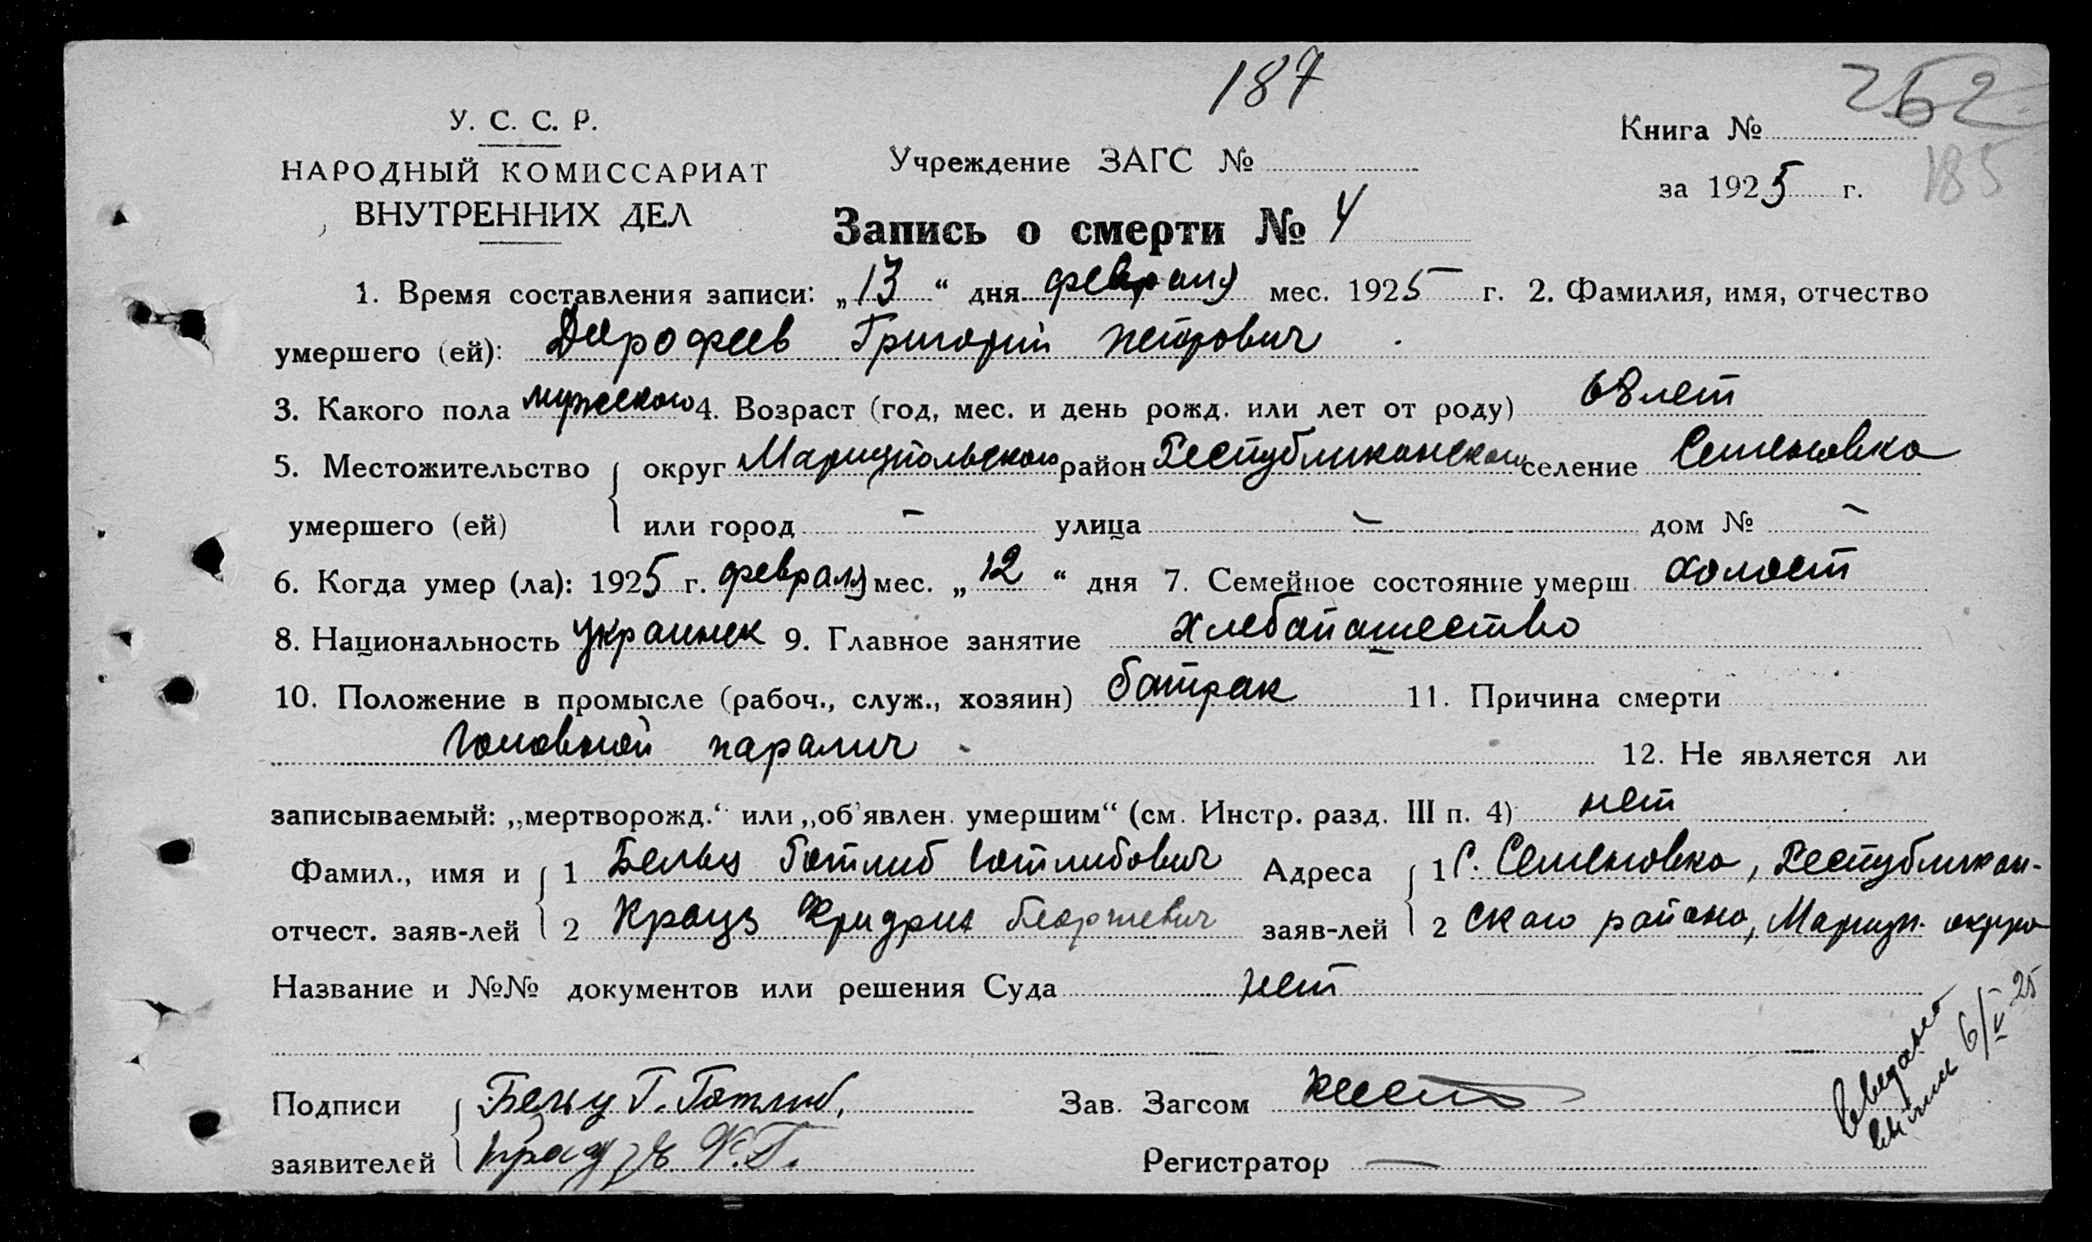 187
252
У. С. С. Р.
Книга №
НАРОДНЫЙ КОМИССАРИАТ
Учреждение ЗАГС №
185
ВНУТРЕННИХ ДЕЛ
за 1925 г.
Запись о смерти № 4
1. Время составления записи: „13“ дня февраля мес. 1925 г. 2. Фамилия, имя, отчество
умершего (ей): Дорофеев Григорий Петрович
3. Какого пола мужского 4. Возраст (год, мес. и день рожд. или лет от роду) 68 лет
5. Местожительство округ Мариупольского район Республиканского селение Семеновка
умершего (ей) или город – улица – дом № –
6. Когда умер (ла): 1925 г. февраля мес. „12“ дня 7. Семейное состояние умерш. холост
8. Национальность украинек 9. Главное занятие хлебопашество
10. Положение в промысле (рабоч., служ., хозяин) батрак 11. Причина смерти
головной паралич 12. Не является ли
записываемый: „мертворожд.“ или „об'явлен. умершим“ (см. Инстр. разд. III п. 4) нет
Фамил., имя и 1 Бельц Готлиб Готлибович Адреса 1 С. Семеновка, Республикан-
отчест. заяв-лей 2 Крауз Фридрих Георгиевич заяв-лей 2 скаго района, Мариуп. округа
Название и №№ документов или решения Суда нет
Подписи Бельц Г. Готлиб. Зав. Загсом
заявителей Ф. Г. Регистратор —
6/V 25